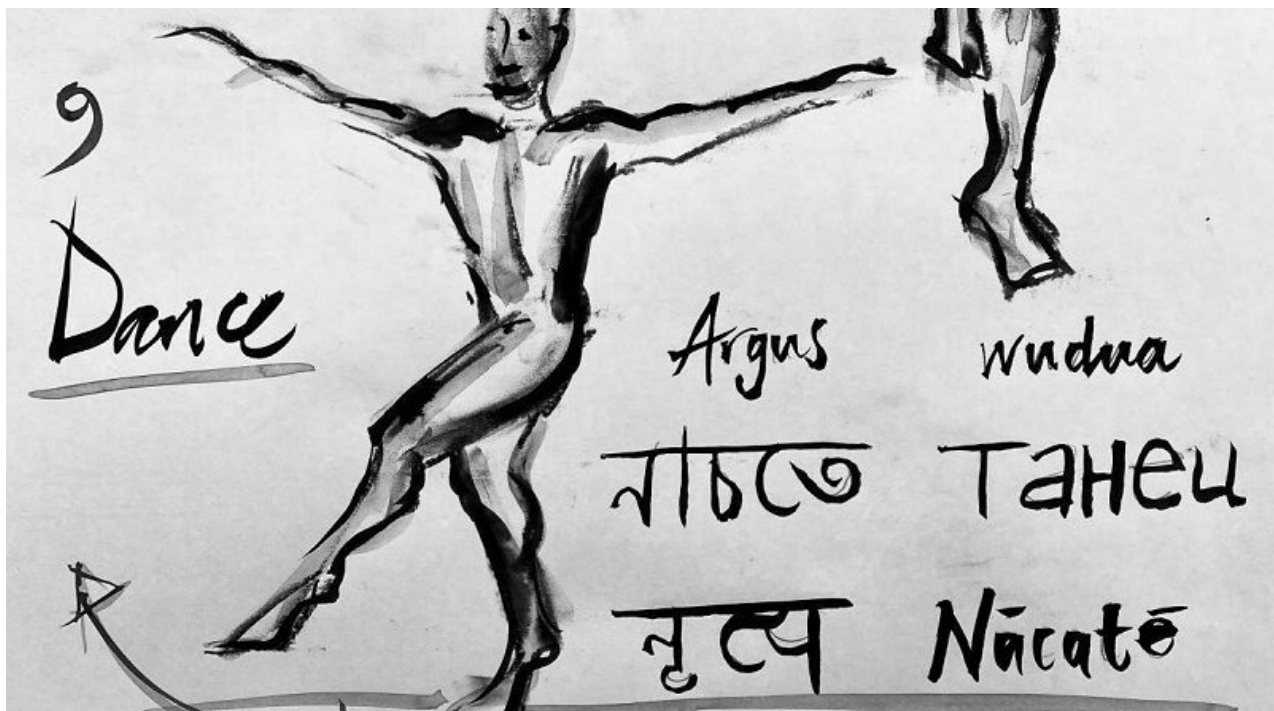 9
Dance
Argus wudua
নাচতে танец
नृत्य Nācatē